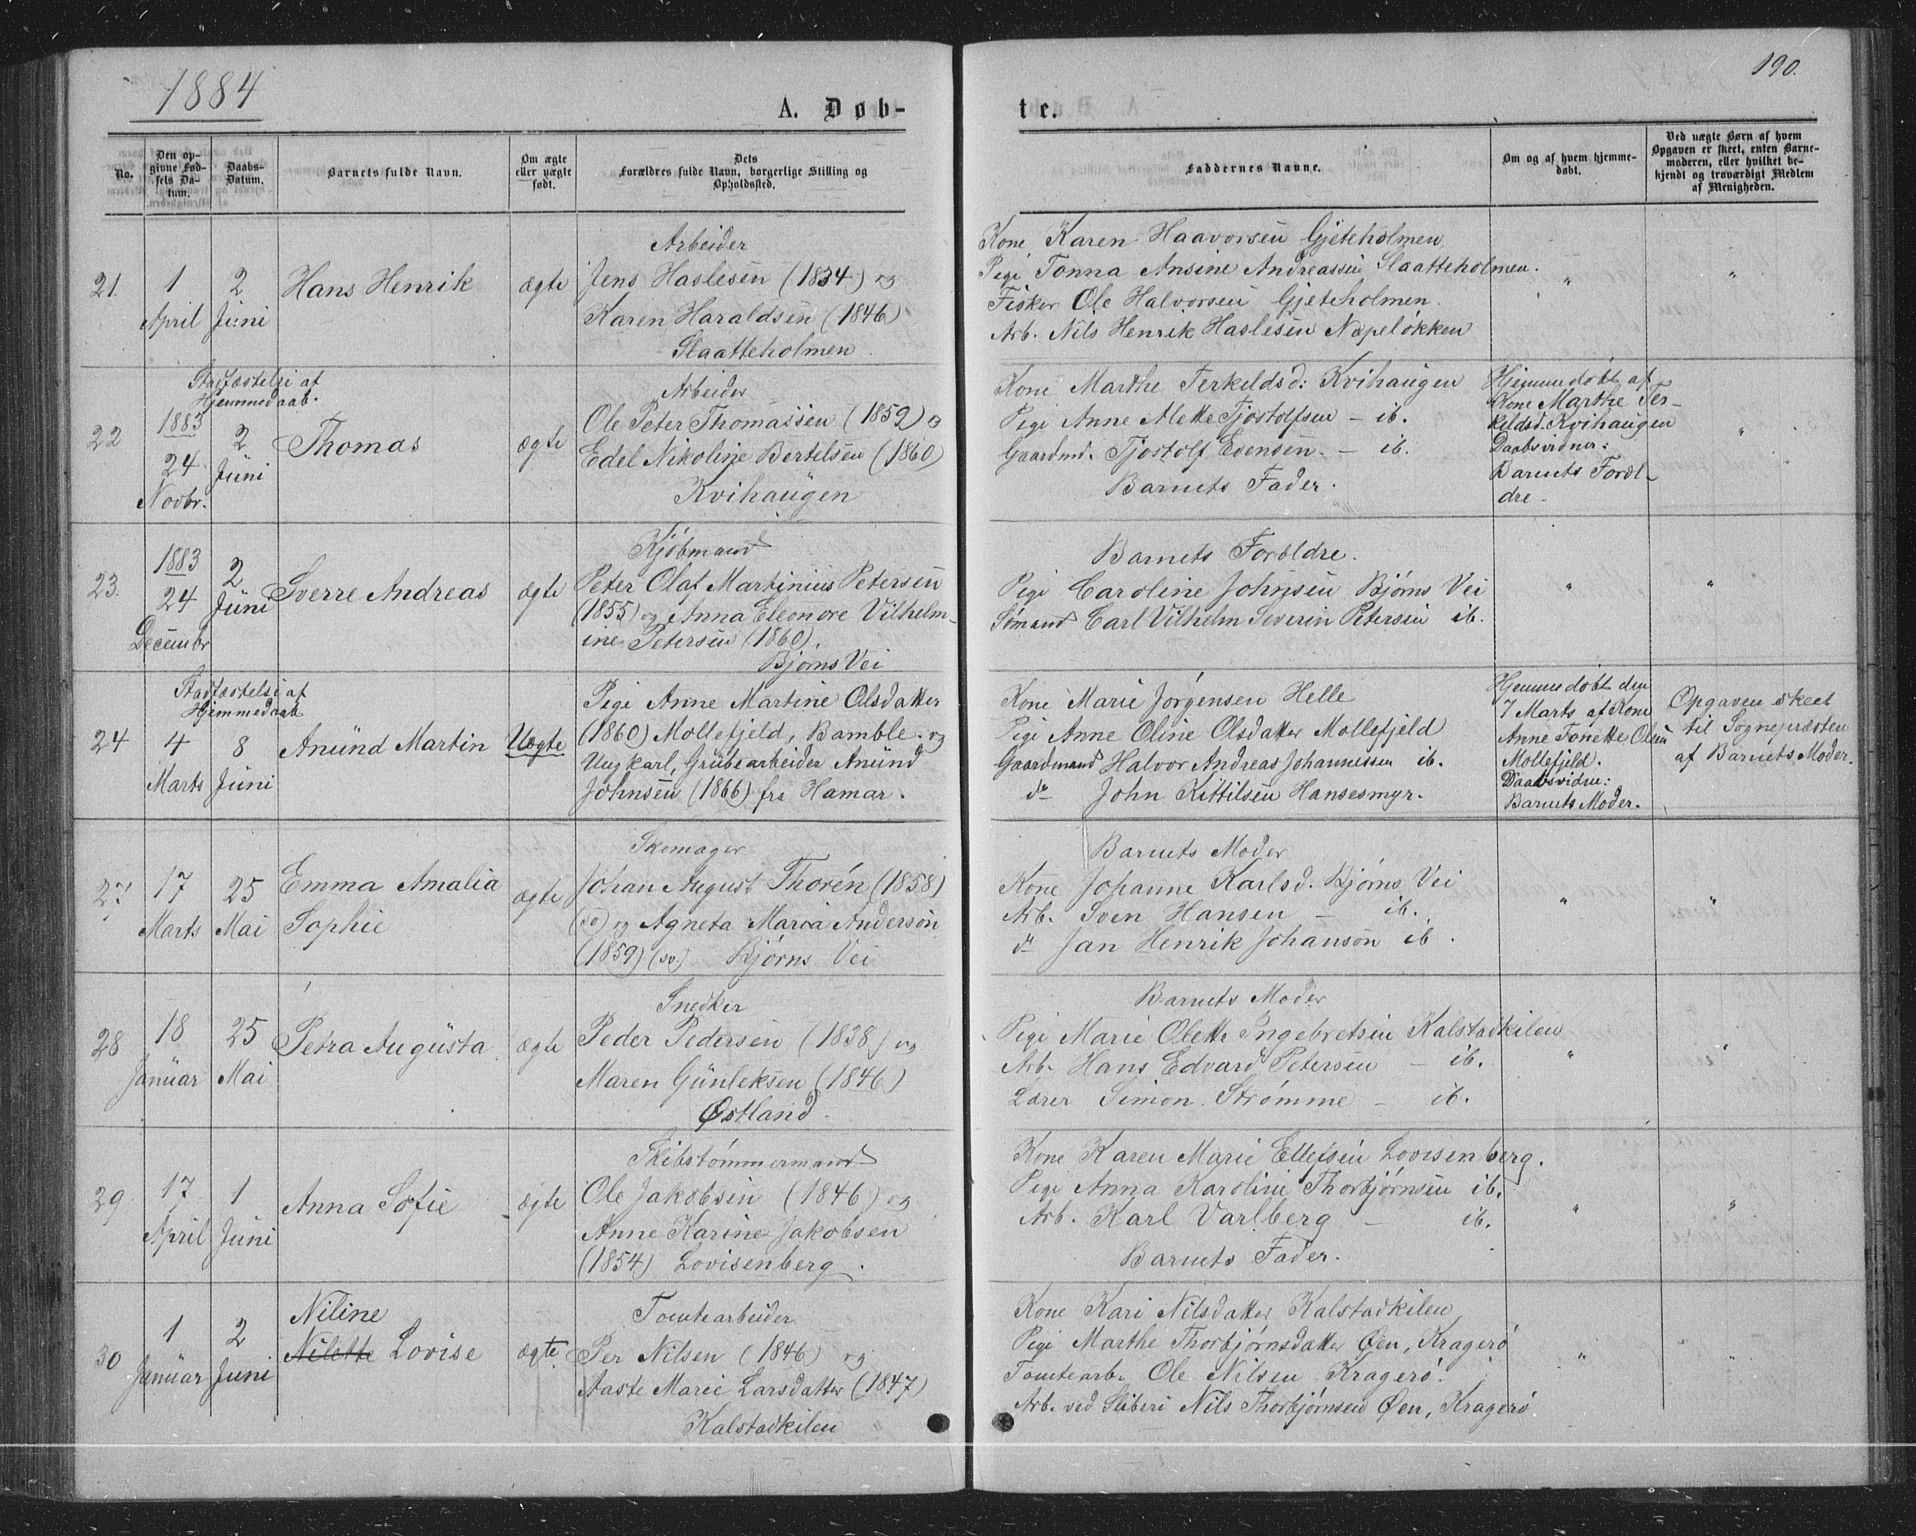 1884
190.
A. Døb-
te.
No.
Den op-
givne Fød-
sels Da-
tum.
Daabs-
Datum.
Barnets fulde Navn.
Om ægte
eller uægte
født.
Dets
Forældres fulde Navn, borgerlige Stilling og
Opholdssted.
Faddernes Navne.
Om og af hvem hjemme-
døbt.
Ved uægte Børn af hvem
Opgaven er skeet, enten Barne-
moderen, eller hvilket be-
kjendt og troværdigt Medlem
af Menigheden.
21.
1
April
2
Juni
Hans Henrik
ægte
Arbeider
Jens Haslesen (1834) og
Karen Haraldsen (1846)
Slaatteholmen
Kone Karen Haavorsen Gjeteholmen
Pige Tonna Ansine Andreassen Slaatteholmen.
Fisker Ole Halvorsen Gjeteholmen.
Arb. Nils Henrik Haslesen Næpeløkken
"
"
22
Stadfæstelse af
Hjemmedaab.
1883
24
Novbr.
2
Juni
Thomas
ægte
Arbeider
Ole Peter Thomassen (1859) og
Edel Nikoline Bertelsen (1860)
Kvihaugen
Kone Marthe Terkeldsd: Kvihaugen
Pige Anne Alette Tjostolfsen - ib.
Gaardmd. Tjostolf Evensen. - ib.
Barnets Fader.
Hjemmedøbt af
Kone Marthe Ter-
keldsd. Kvihaugen
Daabsvidner:
Barnets Foræl-
dre.
"
23.
1883
24
Decembr
2
Juni
Sverre Andreas
ægte
Kjøbmand
Peter Olaf Martinius Petersen
(1855) og Anna Eleonore Vilhelm-
ine Petersen (1860).
Bjørns Vei
Barnets Forældre.
Pige Caroline Johnsen Bjørns Vei
Sømand Carl Vilhelm Severin Petersen ib.
"
"
24
Stadfæstelse af
Hjemmedaab
4
Marts
8
Juni
Anund Martin
Uægte
Pige Anne Martine Olsdatter
(1860) Mollefjeld, Bamble. og
Ungkarl, Grubearbeider Anund
Johnsen (1866) fra Hamar.
Kone Marie Jørgensen Helle
Pige Anne Oline Olsdatter Mollefjeld
Gaardmand Halvor Andreas Johannessen ib.
do John Kittilsen Hansesmyr.
Hjemmedøbt den
7 Marts af Kone
Anne Tonette Olsen
Mollefjeld.
Daabsvidne:
Barnets Moder.
Opgaven skeet
til Sognepræsten
af Barnets Moder.
27
17
Marts
25
Mai
Emma Amalia
Sophie
ægte
Skomager
Johan August Thorén (1858)
(sv) og Agneta Maria Anderson
(1859) (sv.) Bjørns Vei
Barnets Moder
Kone Johanne Karlsd. Bjørns Vei
Arb. Sven Hansen - ib.
do Jan Henrik Johanson ib.
"
"
28
18
Januar
25
Mai
Petra Augusta
ægte
Snedker
Peder Pedersen (1838) og
Maren Gunleksen (1846)
Østland.
Barnets Moder
Pige Marie Olette Ingebretsen Kalstadkilen
Arb. Hans Edvard Petersen - ib.
Lærer Simon Strømme - ib.
"
"
29
17
April
1
Juni
Anna Sofie
ægte
Skibstømmermand
Ole Jakobsen (1846) og
Anne Karine Jakobsen
(1854) Lovisenberg.
Kone Karen Marie Ellefsen Lovisenberg.
Pige Anna Karoline Thorbjørnsen ib.
Arb. Karl Varlberg - ib.
Barnets Fader.
"
"
30
1
Januar
2
Juni
Niline
Nilette Lovise
ægte
Tomtearbeider
Per Nilsen (1846) og
Aaste Marie Larsdatter (1847)
Kalstadkilen
Kone Kari Nilsdatter Kalstadkilen
Pige Marthe Thorbjørnsdatter Øen, Kragerø
Tomtearb. Ole Nilsen Kragerø.
Arb. ved Sliberi Nils Thorbjørnsen Øen, Kragerø
"
"